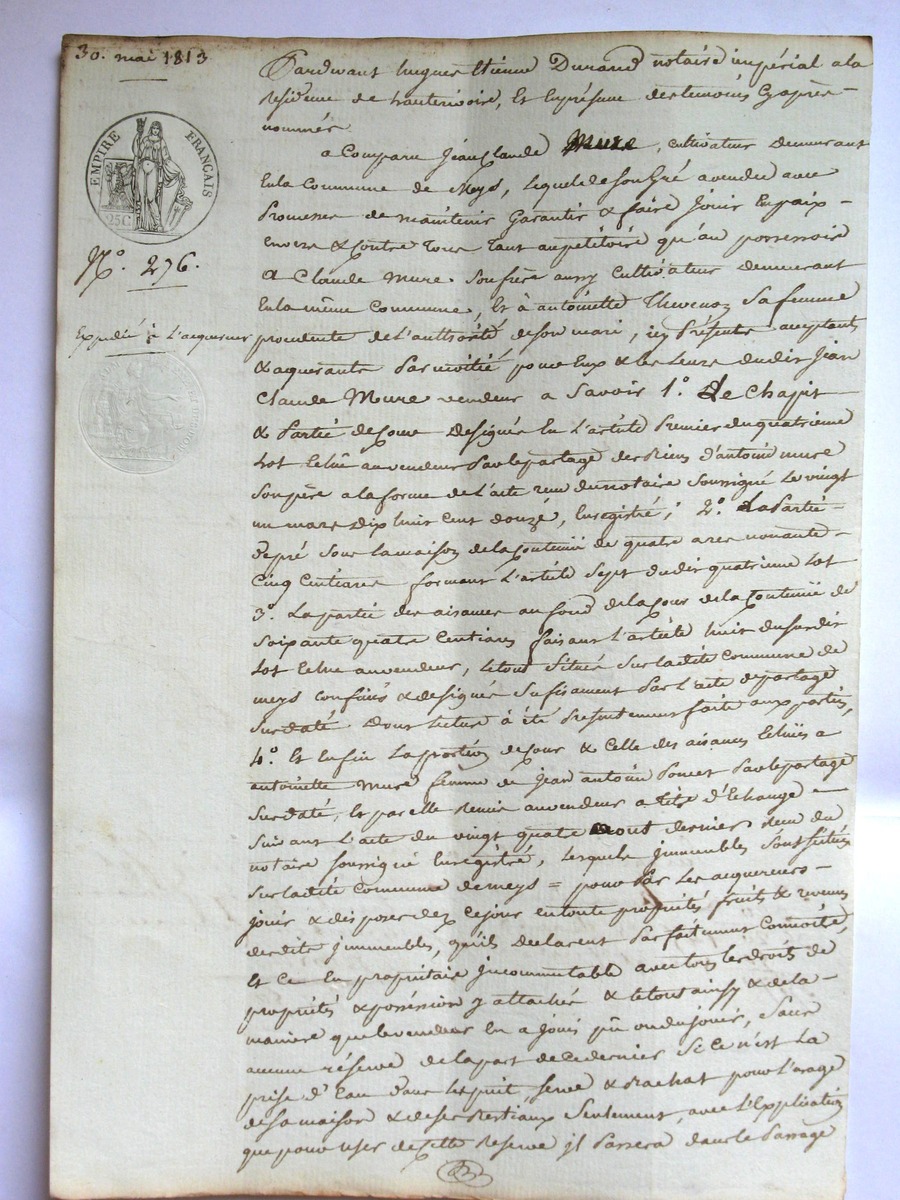 30. mai 1813
EMPIRE FRANÇAIS
25C
N.º 276.
Expedié à l'acquereur
Pardevant hugues Etienne Durand notaire impérial a la
residence de hauterivoire, et en presence des temoins cy après
nommés
a Comparu Jean Claude Mure, cultivateur demeurant
en la Commune de Meys, lequel de son Gré a vendu avec
Promesse de maintenir Garantir & faire Jouir en paix
envers & contre tous tant au petitoire qu'au possessoire
a Claude Mure son frère aussy Cultivateur demeurant
en la même Commune, et à antoinette Thevenoz sa femme
procedente de l'authorité de son mari, icy Présents acceptants
& acquerants Par moitié pour Eux & les leurs dudit Jean
Claude Mure vendeur a Savoir 1.º Le Chapit
& Partie de Cour designés en l'article Premier du quatrieme
lot echu au vendeur Par le partage des Biens d'antoine mure
son père a la forme de l'acte reçu du notaire soussigné le vingt
un mars dix huit cent douze, enregistré; 2.º La Partie
de pré sous la maison de la Contenue de quatre ares nonante
Cinq Centiares formant l'article Sept dudit quatrieme lot
3.º La partie des aisances au fond de la Cour de la Contenue de
Soixante quatre Centiares faisant l'article huit du susdit
lot echu au vendeur, le tout Situé sur ladite Commune de
meys confinés & designés Sufisament Par l'acte de partage
sus daté Dont lecture à été presentement faite aux parties,
4.º Et enfin La portion de Cour & Celle des aisances echues a
antoinette Mure femme de Jean antoine Poncet Par le partage
sus daté, et par elle remis au vendeur a titre d'Echange
Suivant l'acte du vingt quatre aout dernier reçu du
notaire soussigné enregistré, lesquels immeubles sont situés
sur ladite Commune de meys = pour Par les acquereurs
jouir & disposer dez ce jour en toute proprieté fruits & revenus
desdits immeubles, qu'ils declarent Parfaitement Connoitre,
et ce en proprietaire incommutable avec tous les droits de
proprieté & possession y attachés & le tout ainsy & de la
maniere que le vendeur en a joui pû ou du jouir, Sans
aucune réserve de la part de ce dernier si ce n'est La
prise d'eau dans le puit, serve & rachat pour l'usage
de sa maison & de ses Bestiaux Seulement, avec l'Explication
que pour user de cette Reserve il Passera dans le Passage